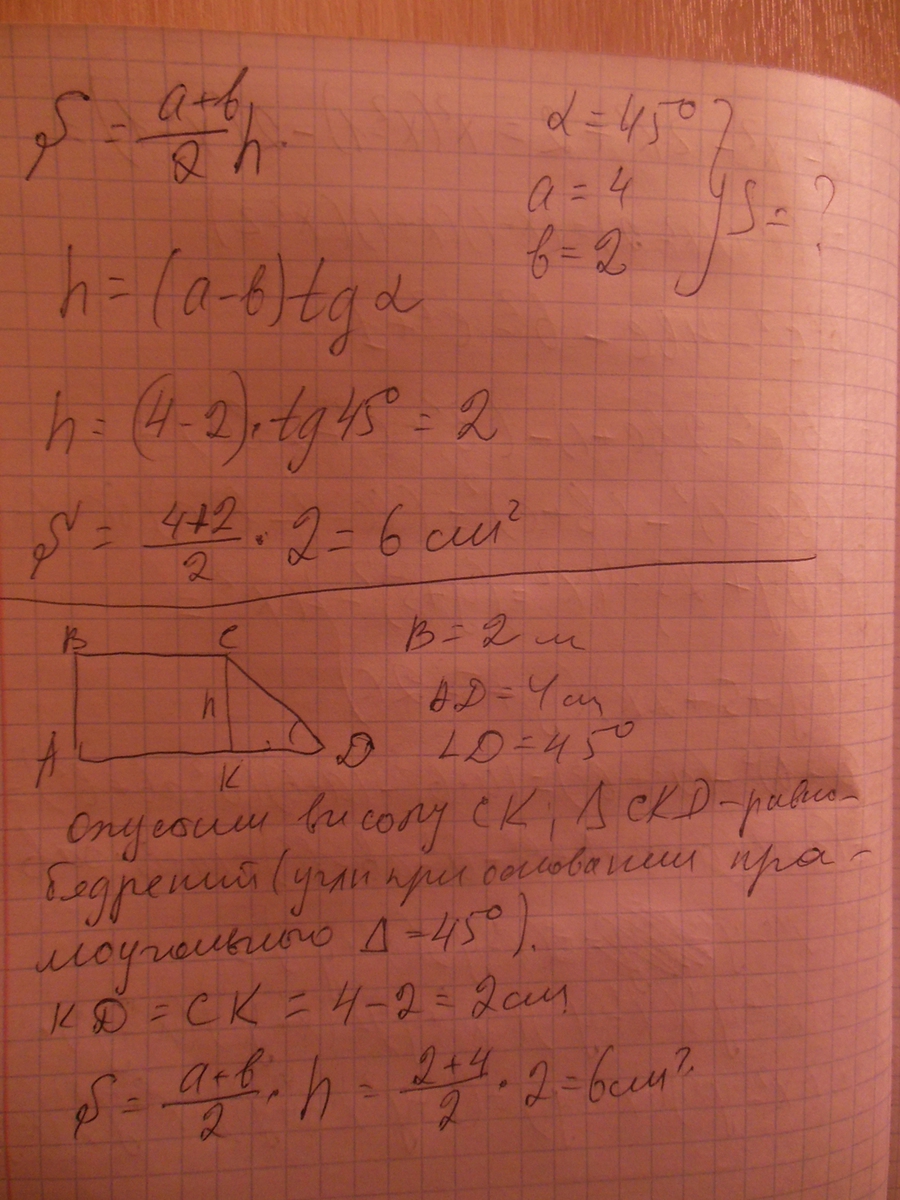 S = (a+b)/2 h.
α = 45°
a = 4
b = 2
} S = ?
h = (a-b) tg α
h = (4-2)·tg 45° = 2
S = (4+2)/2 · 2 = 6 см²
B C
h
A K D
B = 2 м
AD = 4 см
∠D = 45°
Опустим висоту CK; Δ CKD - равно-
бедрений (угли при основании пря-
моугольного Δ = 45°).
KD = CK = 4-2 = 2 см
S = (a+b)/2 · h = (2+4)/2 · 2 = 6 см².